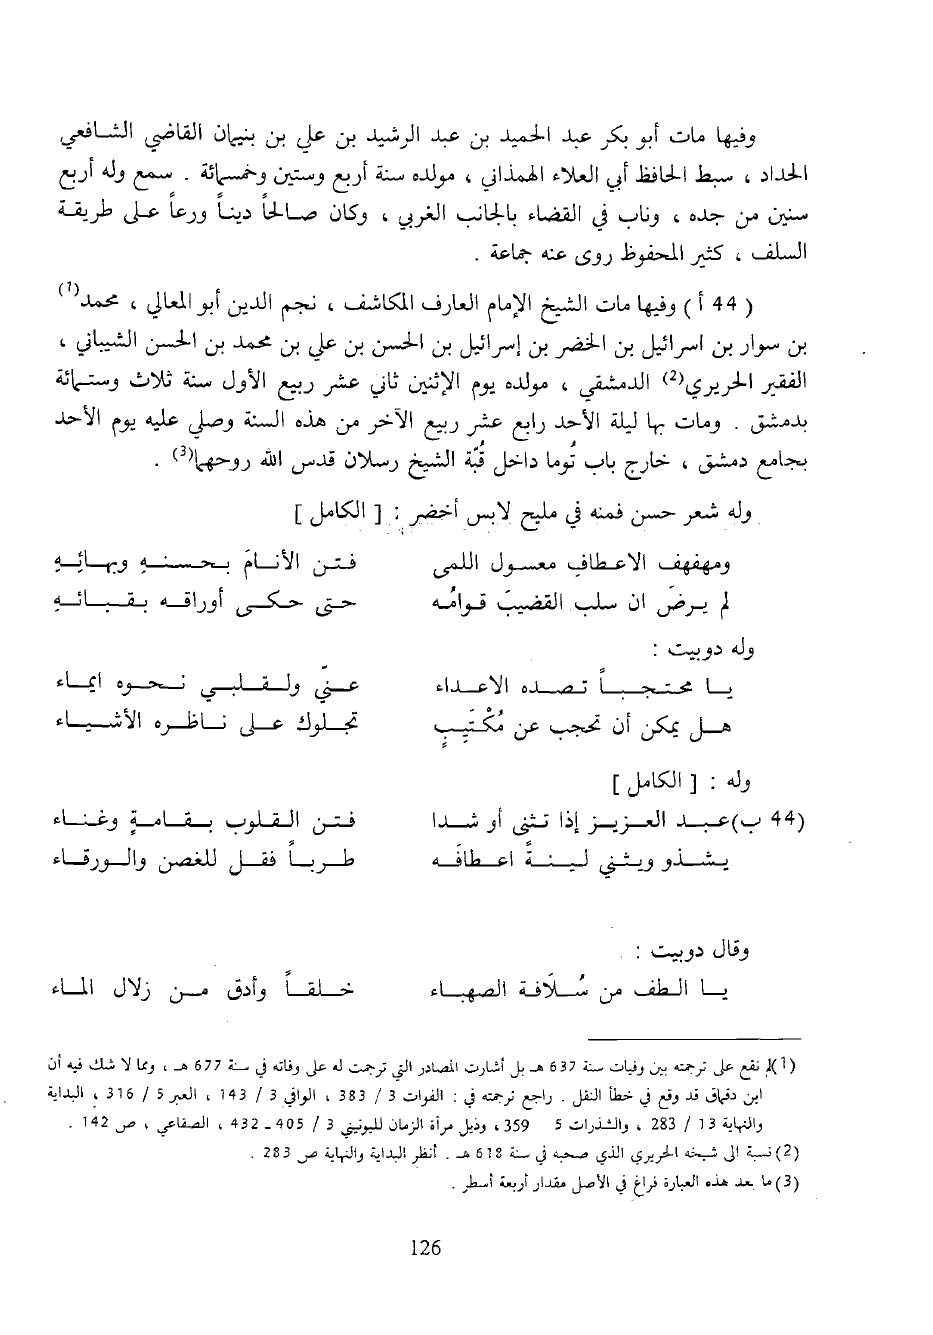 وفيها مات أبو بكر عبد الحميد بن عبد الرشيد بن علي بن بنيمان القاضي الشافعي
الحداد ، سبط الحافظ أبي العلاء الهمذاني ، مولده سنة أربع وستين وخمسمائة . سمع وله أربع
سنين من جده ، وناب في القضاء بالجانب الغربي ، وكان صالحاً ديناً ورعاً على طريقة
السلف ، كثير المحفوظ روى عنه جماعة .
( 44 أ ) وفيها مات الشيخ الإمام العارف المكاشف ، نجم الدين أبو المعالي ، محمد(1)
بن سوار بن اسرائيل بن الخضر بن إسرائيل بن الحسن بن علي بن محمد بن الحسن الشيباني ،
الفقير الحريري(2) الدمشقي ، مولده يوم الإثنين ثاني عشر ربيع الأول سنة ثلاث وستمائة
بدمشق . ومات بها ليلة الأحد رابع عشر ربيع الآخر من هذه السنة وصلي عليه يوم الأحد
بجامع دمشق ، خارج باب تُوما داخل قُبّة الشيخ رسلان قدس الله روحهما(3) .
وله شعر حسن فمنه في مليح لابس أخضر : [ الكامل ]
ومهفهف الاعطاف معسول اللمى فتن الأنامَ بحسنه وبهائِهِ
لم يرضَ ان سلب القضيبَ قوامُه حتى حكى أوراقه بقبائه
وله دوبيت :
يا محتجباً تصده الاعداء عنّي ولقلبي نحوه ايماء
هل يمكن أن تحجب عن مُكْتَئِبٍ تجلوك على ناظره الأشياء
وله : [ الكامل ]
(44 ب)عبد العزيز إذا تثنى أو شدا فتن القلوب بقامةٍ وغناء
يشدو ويثني لينةً اعطافَه طرباً فقل للغصن والورقاء
وقال دوبيت :
يا الطف من سُلاَفة الصهباء خلقاً وأدق من زلال الماء
(1)لم نقع على ترجمته بين وفيات سنة 637 هـ بل أشارت المصادر التي ترجمت له على وفاته في سنة 677 هـ ، ومما لا شك فيه أن
ابن دقماق قد وقع في خطأ النقل . راجع ترجمته في : الفوات 3 / 383 ، الوافي 3 / 143 ، العبر 5 / 316 ، البداية
والنهاية 13 / 283 ، والشذرات 5 359 ، وذيل مرآة الزمان لليونيني 3 / 405 ـ 432 ، الصقاعي ، ص 142 .
(2)نسبة الى شيخه الحريري الذي صحبه في سنة 618 هـ . أنظر البداية والنهاية ص 283 .
(3)ما بعد هذه العبارة فراغ في الأصل مقدار أربعة أسطر .
126